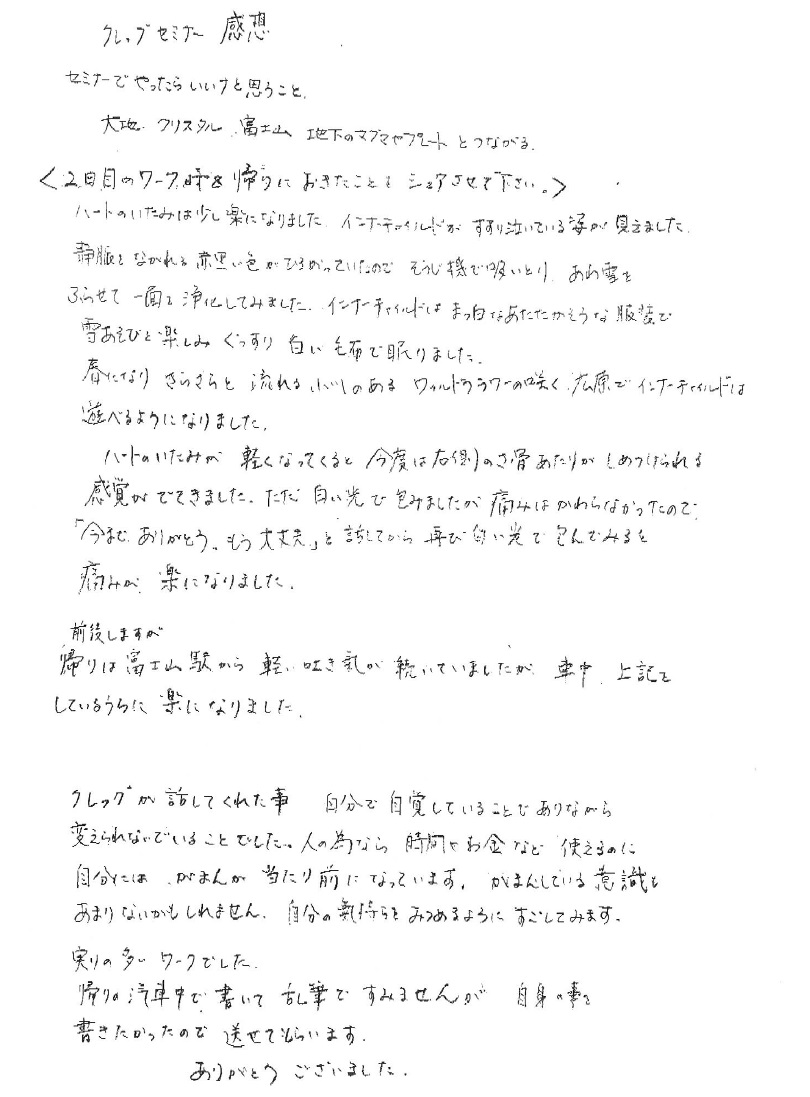 クレッグセミナー 感想
セミナーでやったらいいけと思うこと、
大地、クリスタル、富士山 地下のマグマやプレートとつながる。
<2日目のワーク、時& 帰りにおきたことも シェアさせて下さい。>
ハートのいたみは少し楽になりました。インナーチャイルドが すすり泣いている姿が見えました。
静脈をながれる 赤黒い色がひろがっていたので そうじ機で吸いとり、あわ雪を
ふらせて 一面を浄化してみました。インナーチャイルドは まっ白なあたたかそうな服装で
雪あそびを楽しみ ぐっすり 白い毛布で眠りました。
春になり さらさらと 流れる 小川のある ワイルドフラワーの咲く 広原で インナーチャイルドは
遊べるようになりました。
ハートのいたみが 軽くなってくると 今度は右側のさ骨あたりが しめつけられる
感覚が でてきました。ただ 白い光で 包みましたが 痛みは かわらなかったので、
「今まで ありがとう。もう大丈夫」と 話してから 再び 白い光で 包んでみると
痛みが 楽になりました。
前後しますが
帰りは富士山駅から 軽い吐き気が 続いていましたが 車中、上記を
しているうちに 楽になりました。
クレッグが 話してくれた事 自分で自覚していることでありながら
変えられないでいることでした。人の為なら 時間やお金など 使えるのに
自分には がまんが 当たり前になっています。がまんしている意識も
あまりないかもしれません。自分の氣持ちを みつめるように すごしてみます。
実りの多い ワークでした。
帰りの汽車中で 書いて 乱筆で すみませんが 自身の事を
書きたかったので 送せてもらいます。
ありがとう ございました。